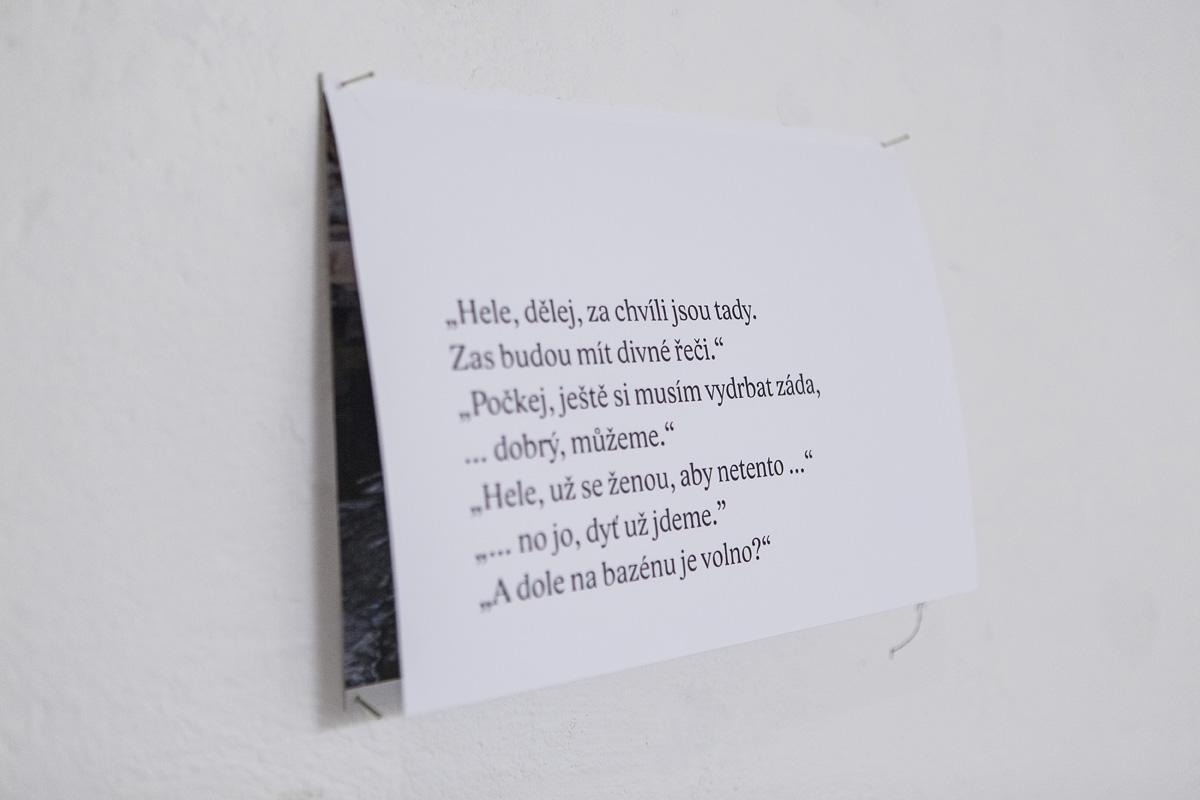 „Hele, dělej, za chvíli jsou tady.
Zas budou mít divné řeči.“
„Počkej, ještě si musím vydrbat záda,
... dobrý, můžeme.“
„Hele, už se ženou, aby netento ...“
„... no jo, dyť už jdeme.”
„A dole na bazénu je volno?“